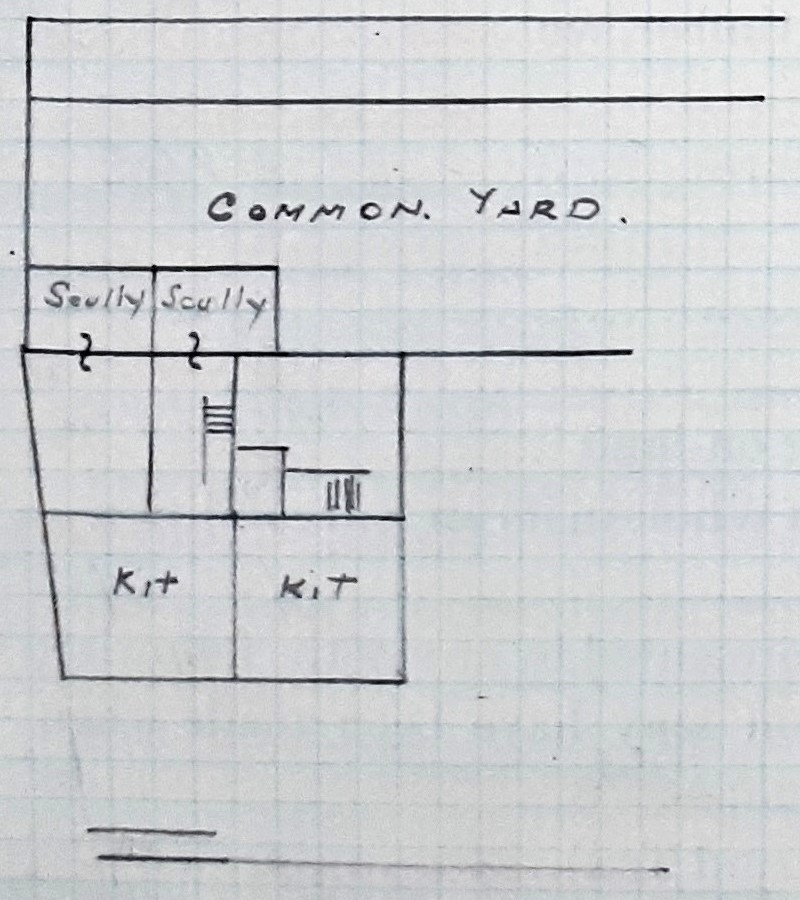 COMMON. YARD.
Scully Scully
Kit KiT